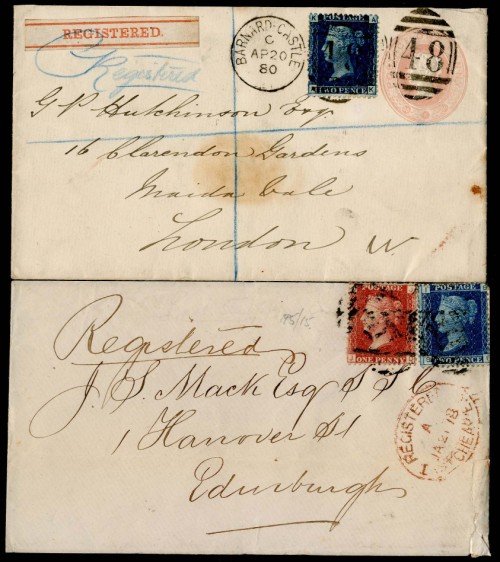 REGISTERED.
Registered
BARNARD-CASTLE
C
AP 20
80
48
TWO PENCE
G P Hutchinson Esq
16 Clarendon Gardens
Maida Vale
London W
Registered
POSTAGE
ONE PENNY
POSTAGE
TWO PENCE
J. S. Mack Esq S S C
1 Hanover St
Edinburgh
REGISTERED
A
JA 21 18
CHEAPSIDE